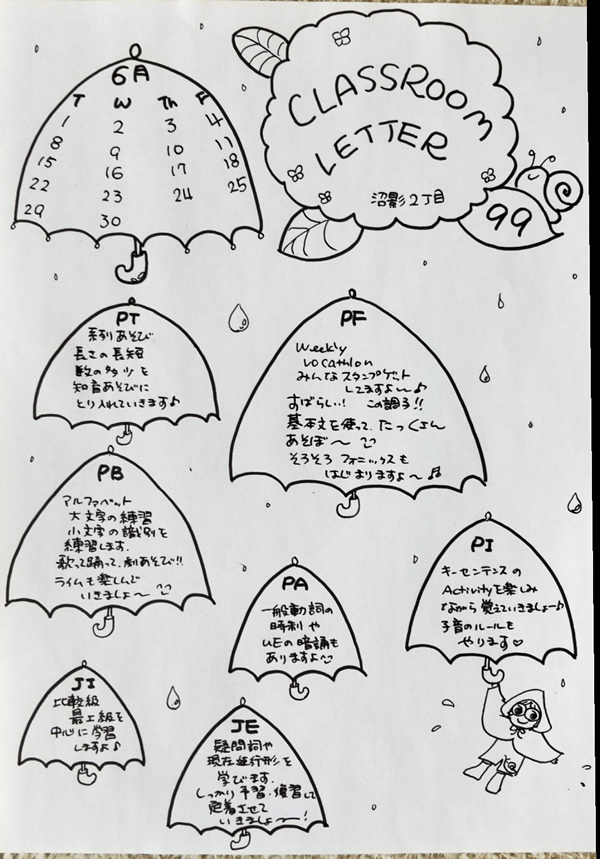 6月
T W Th F
1 2 3 4
8 9 10 11
15 16 17 18
22 23 24 25
29 30
CLASSROOM
LETTER
沼影2丁目
99
PT
系列あそび
長さの長短
数の多少を
知育あそびに
とり入れていきます♪
PF
Weekly
vocathlon
みんなスタンプゲット
してますよ〜♪
すばらしい! この調子!!
基本文を使って、たっくさん
あそぼ〜
そろそろフォニックスも
はじまりますよ〜♬
PB
アルファベット
大文字の練習
小文字の識別を
練習します。
歌って踊って、劇あそび!!
ライムも楽しんで
いきましょ〜
PA
一般動詞の
時制や
UEの暗誦も
ありますよ〜
PI
キーセンテンスの
Activityを楽しみ
ながら覚えていきましょー♪
子音のルールも
やります♡
JI
比較級
最上級を
中心に学習
しますよ♪
JE
疑問詞や
現在進行形を
学びます。
しっかり予習・復習して
定着させて
いきましょ〜!